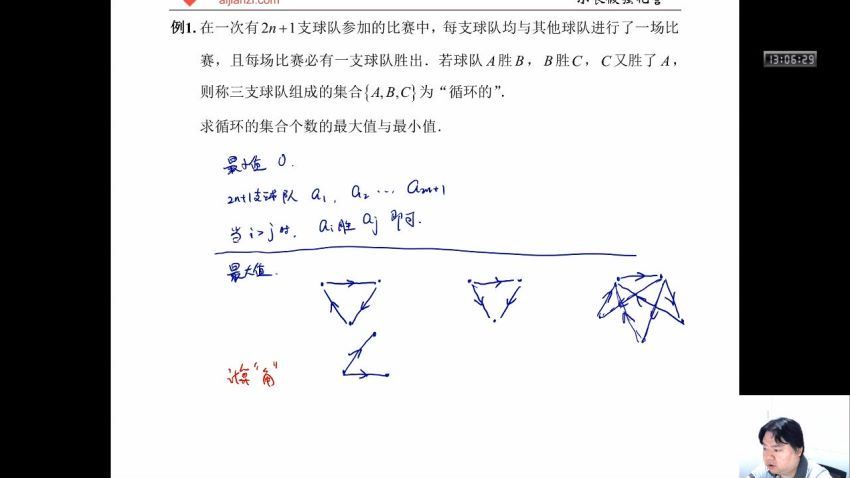 aijianzi.com
例1. 在一次有2n+1支球队参加的比赛中，每支球队均与其他球队进行了一场比
赛，且每场比赛必有一支球队胜出．若球队A胜B，B胜C，C又胜了A，
则称三支球队组成的集合{A,B,C}为“循环的”．
求循环的集合个数的最大值与最小值．
13:06:29
最小值 0.
2n+1支球队 a₁, a₂ … a₂ₙ₊₁
当 i>j 时, aᵢ胜 aⱼ 即可.
最大值.
计算“角”